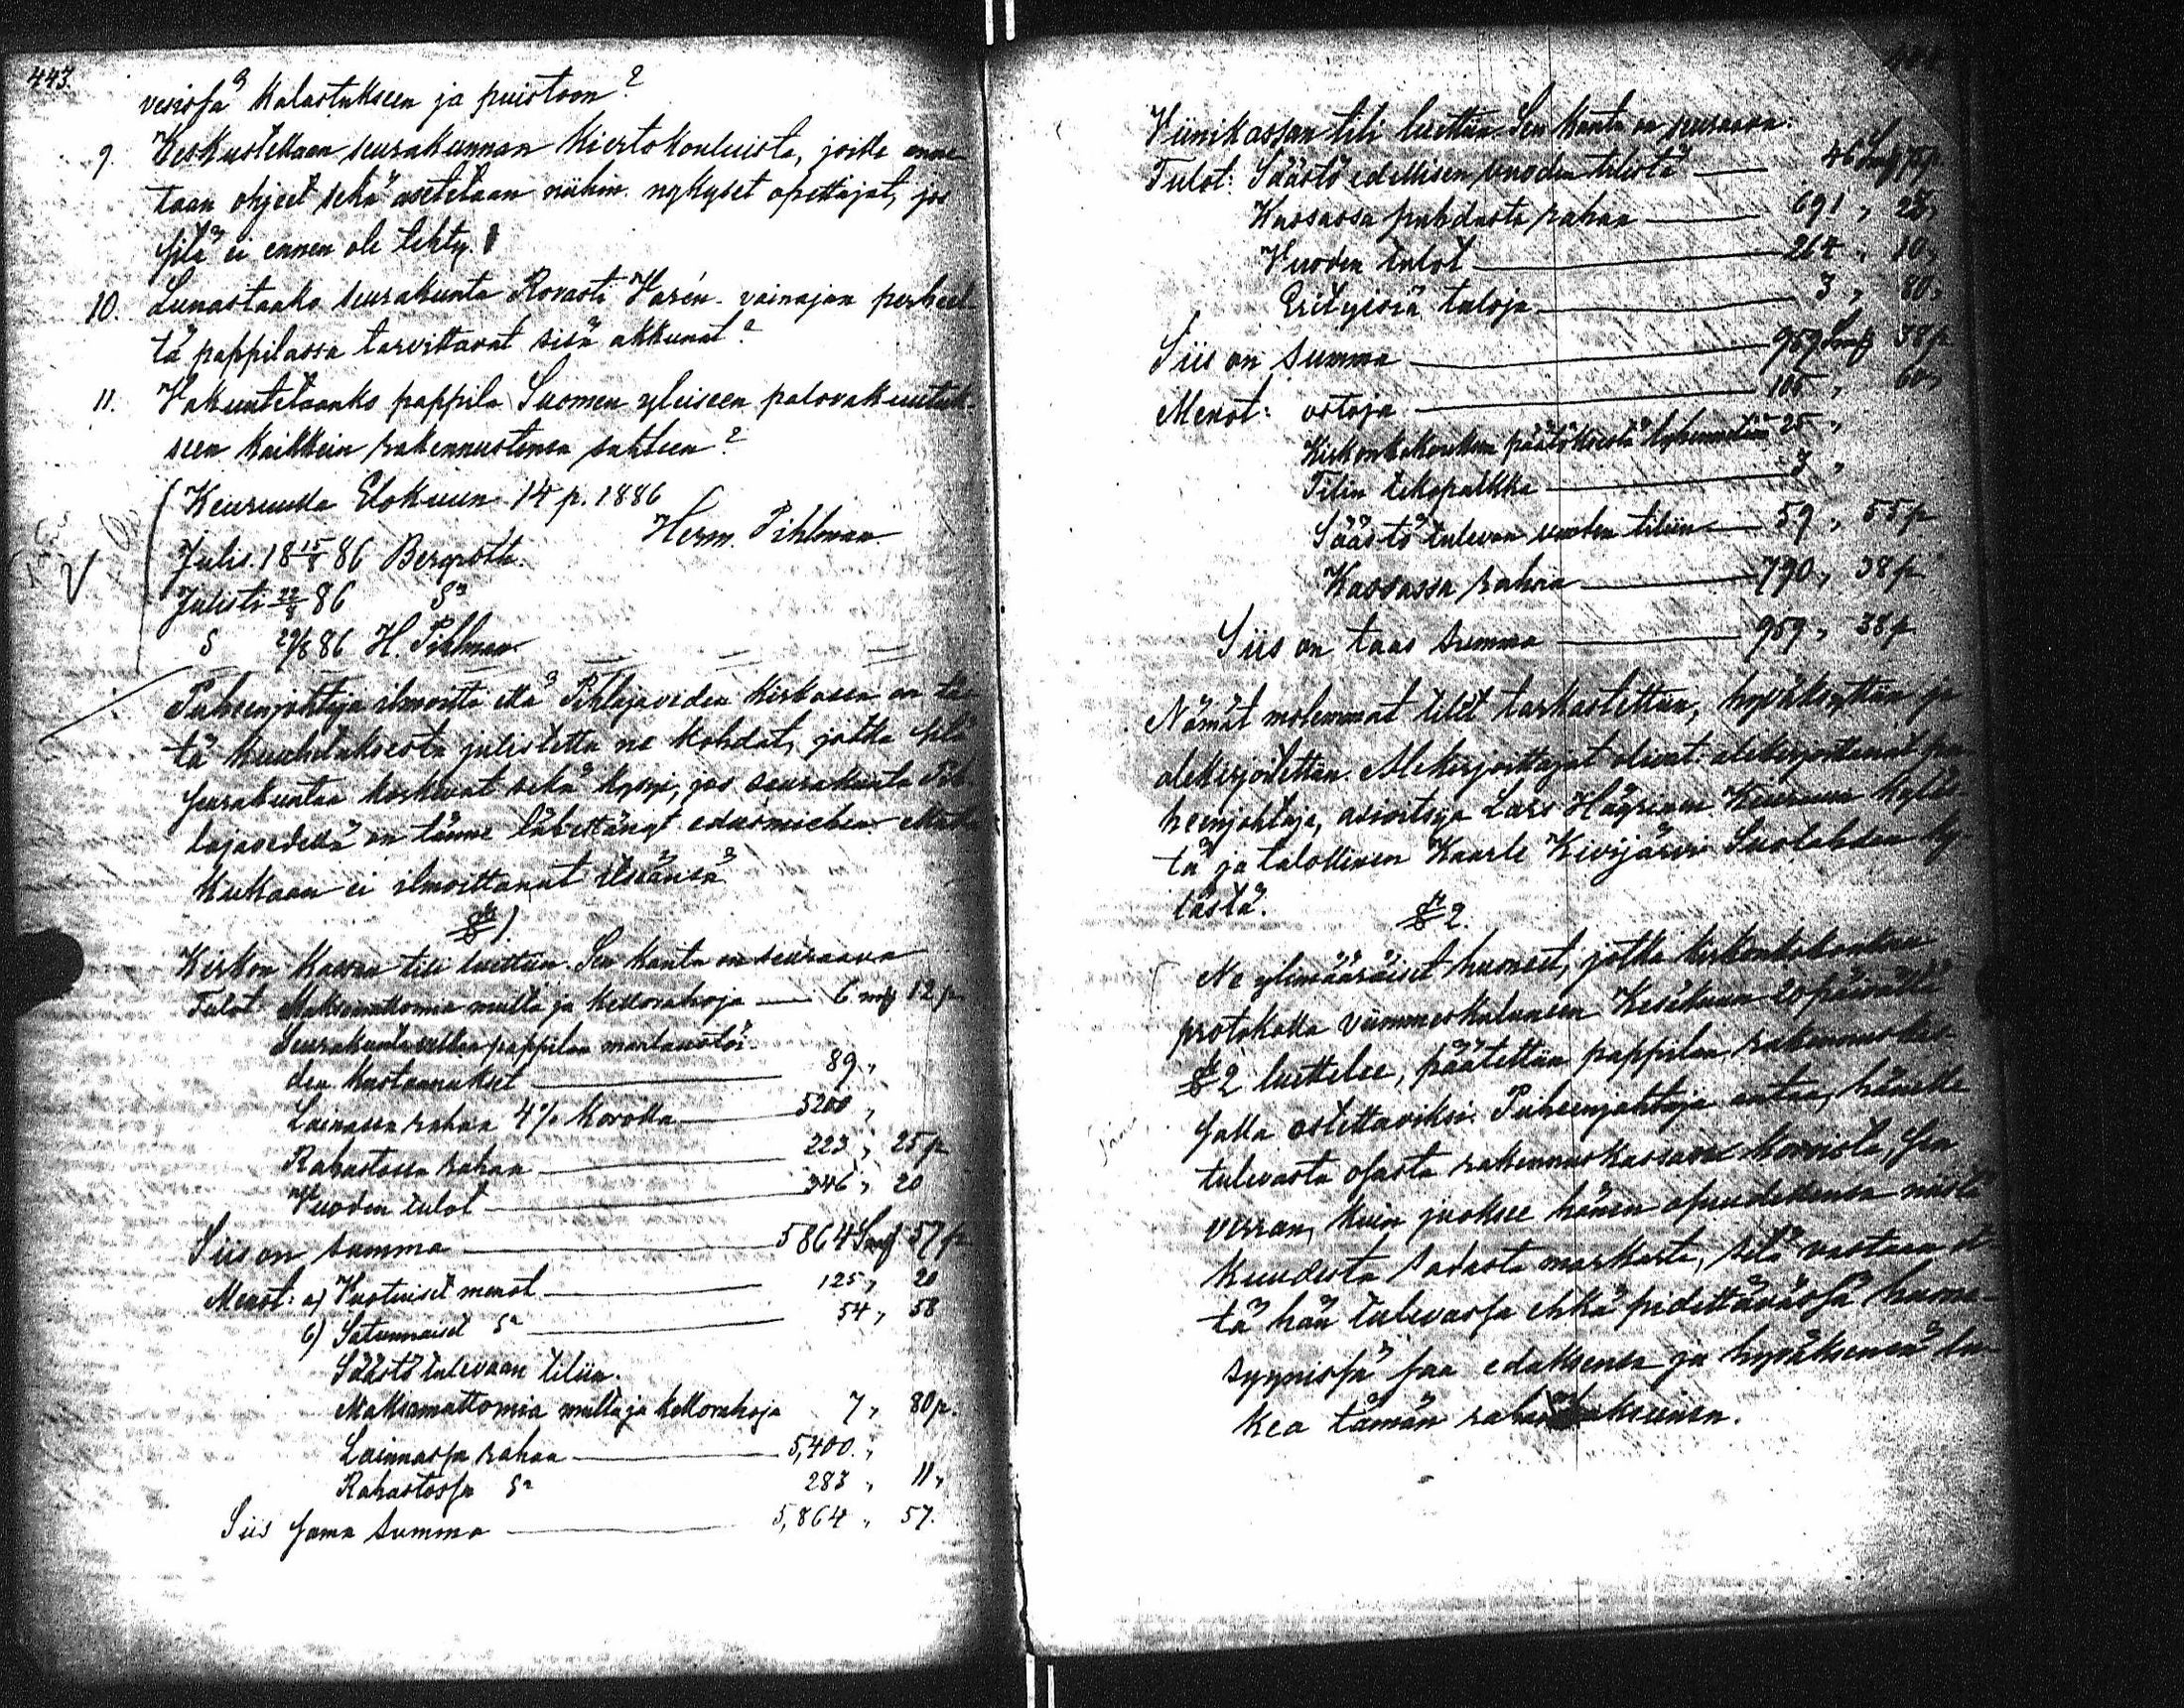 443.
vesissä kalastukseen ja puistoon?
9. Keskustellaan seurakunnan kiertokouluista, joille anne-
taan ohjeet sekä asetetaan niihin nykyset opettajat, jos
sitä ei ennen ole tehty.
10. Lunastaako seurakunta Rovasti Harén-vainajan perheel-
tä pappilassa tarvittavat sisä akkunat?
11. Vakuutetaanko pappila Suomen yleiseen palovakuutuk-
seen kaikkein rakennustensa suhteen?
Keuruulla Elokuun 14 p. 1886
Herm. Pihlman.
Julis. 18 15/8 86 Bergroth.
Julisti 22/8 86 So
S 29/8 86 H. Pihlman
Puheenjohtaja ilmoitti että Pihlajaveden kirkossa on täs-
tä kuulutuksesta julistettu ne kohdat, jotka sitä
seurakuntaa koskevat sekä kysyi, jos seurakunta Pih-
lajavedellä on tänne lähettänyt edusmiehen. Mutta
kukaan ei ilmoittanut itseänsä
§ 1
Kirkon kassan tili luettiin. Sen kanta on seuraava
Tulot Maksamattomia multa ja kellorahoja — 6 mf 12 p
Seurakunta velkaa pappilan maataustöi-
den kustannukset — 89 "
Lainassa rahaa 4% korolla — 5200 "
Rahastossa rahaa — 223 " 25 p
Vuoden tulot — 346 " 20
Siis on summa — 5864 Smf 57 p
Menot: a) Vuotuiset menot — 125 " 20
b) Satunnaiset So — 54 " 58
Säästö tulevaan tiliin.
Maksamattomia multa ja kellorahoja 7 " 80 p.
Lainnassa rahaa — 5,400. "
Rahastossa So 283 " 11 "
Siis sama summa — 5,864 " 57.
Viinikassan tili luettiin. Sen kanta on seuraava.
Tulot: Säästö edellisen vuoden tilistä —
Kassassa puhdasta rahaa — 691 " 28 "
Vuoden tulot — 264 " 10 "
Erityisiä tuloja — 3 " 80 "
Siis on summa — 959 Smf 38 p
Menot: ostoja — 105 " 60 "
Kirkonkokouksen päätöksestä lyhennetään 25 "
Tilin tekopalkka —
Säästö tulevan vuoden tiliin — 59 " 55 p
Kassassa rahaa — 790 " 38 p
Siis on taas summa — 959 " 38 p
Nämät molemmat tilit tarkastettiin, hyväksyttiin ja
alekirjoitettiin. Alekirjoittajat olivat: alekirjottanut pu-
heenjohtaja, asioitsija Lars Hägrinen Keuruun kyläs-
tä ja talollinen Kaarle Kivijärvi Suolahden ky-
lästä.
§ 2.
Ne ylimääräiset huoneet, jotka kirkonkokouksen
protokolla viimmeskuluneen Kesäkuun 20 päivältä
§ 2 luettelee, päätettiin pappilan rakennuskas-
salla ostettaviksi. Puheenjohtaja antaa, hänelle
tulevasta osasta rakennuskassan koroista, sen
verran, kuin juoksee hänen osuudellensa näistä
kuudesta sadasta markasta, sitä vastaan et-
tä hän tulevassa ehkä pidettävässä huone-
syynissä saa eduksensa ja hyväksensä lu-
kea tämän